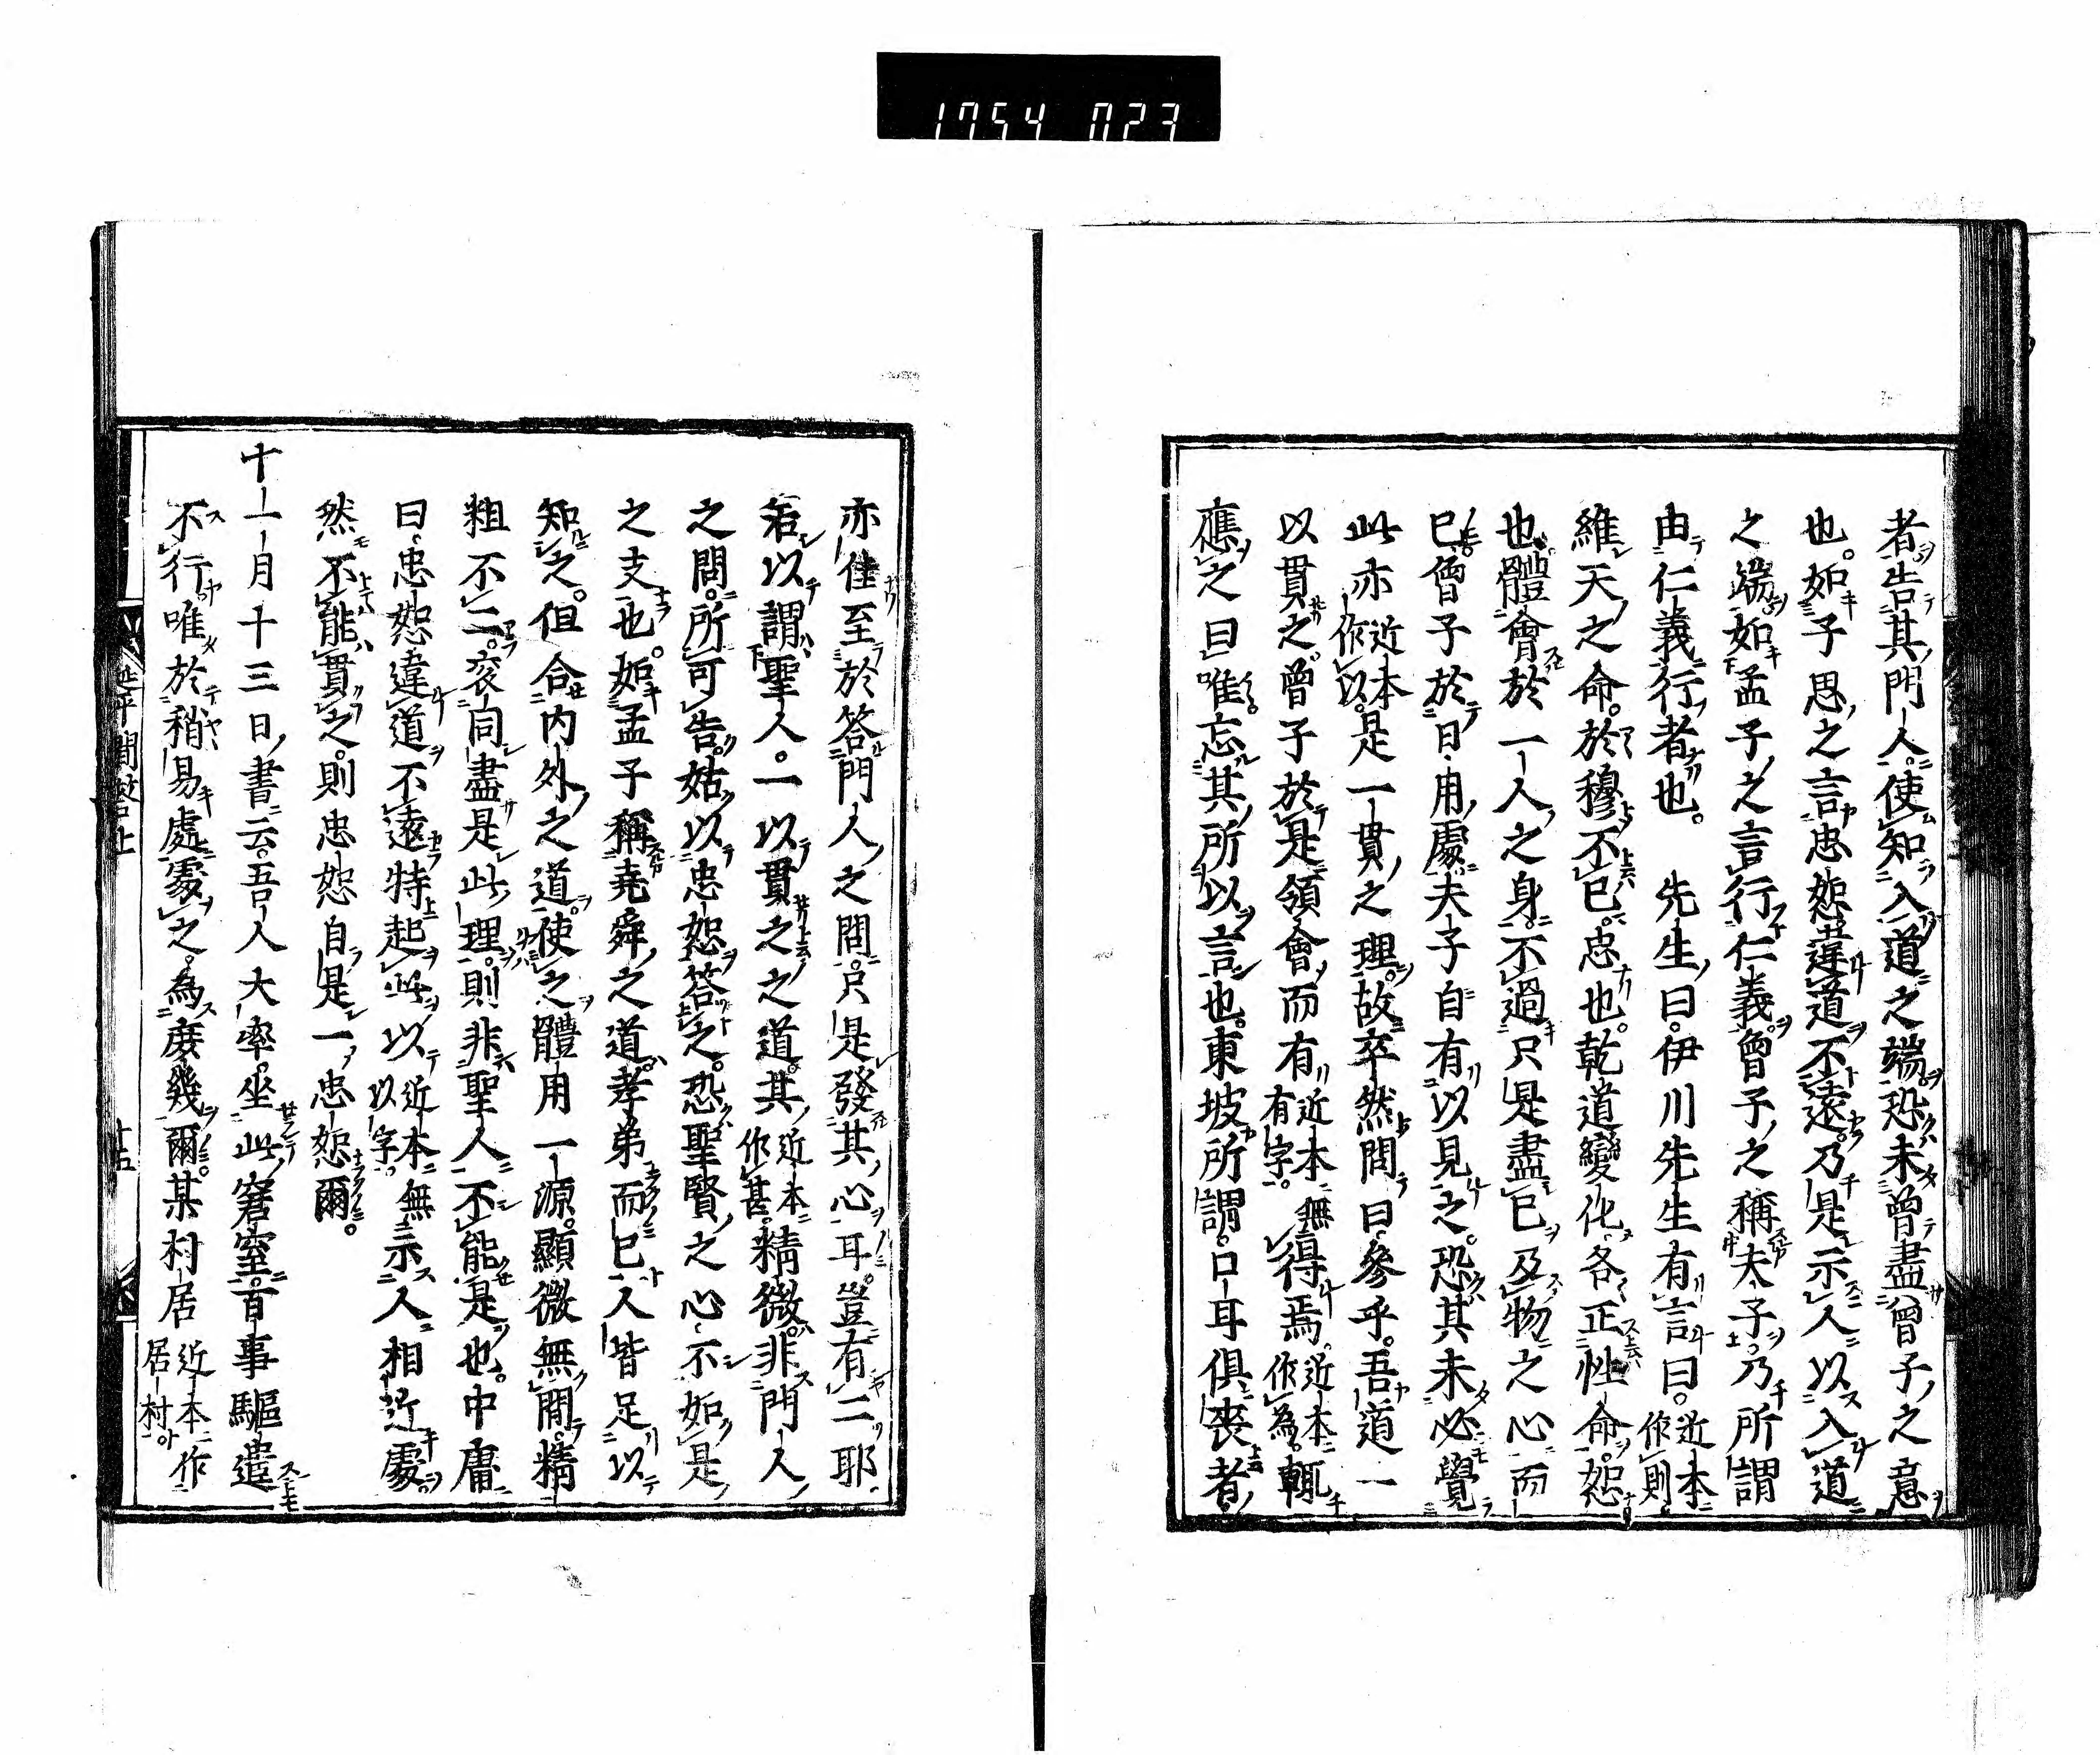 1754 023
者告其門人使知入道之端恐未曾盡曾子之意
也。如子思之言忠恕違道不遠乃是示人以入道
之端如孟子之言行仁義曾子之稱夫子乃所謂
由仁義行者也。先生曰。伊川先生有言曰。近本作則
維天之命。於穆不已。忠也。乾道變化各正性命。恕
也。體會於一人之身。不過只是盡已及物之心而
已。曾子於日用處夫子自有以見之。恐其未必覺
此亦近本作以。是一貫之理。故卒然問曰。參乎。吾道一
以貫之曾子於是領會而有近本無有字。得焉。近本作為。輒
應之曰唯。忘其所以言也。東坡所謂。口耳俱喪者
亦佳至於答門人之問。只是發其心耳。豈有二耶
若以謂聖人。一以貫之之道。其近本作甚。精微。非門人
之問。所可告。姑以忠恕答之。恐聖賢之心不如是
之支也。如孟子稱堯舜之道。孝弟而已人皆足以
知之。但合内外之道。使之體用一源。顯微無間。精
粗不二。衮同盡是此理。則非聖人不能是也。中庸
曰。忠恕違道不遠特起此以近本無以字。示人相近處。
然不能貫之。則忠恕自是一忠恕爾。
十一月十三日書云。吾人大率。坐此窘窶。百事驅遣
不行唯於稍易處處之。為庶幾爾。某村居近本作居村
延平問答上
十五